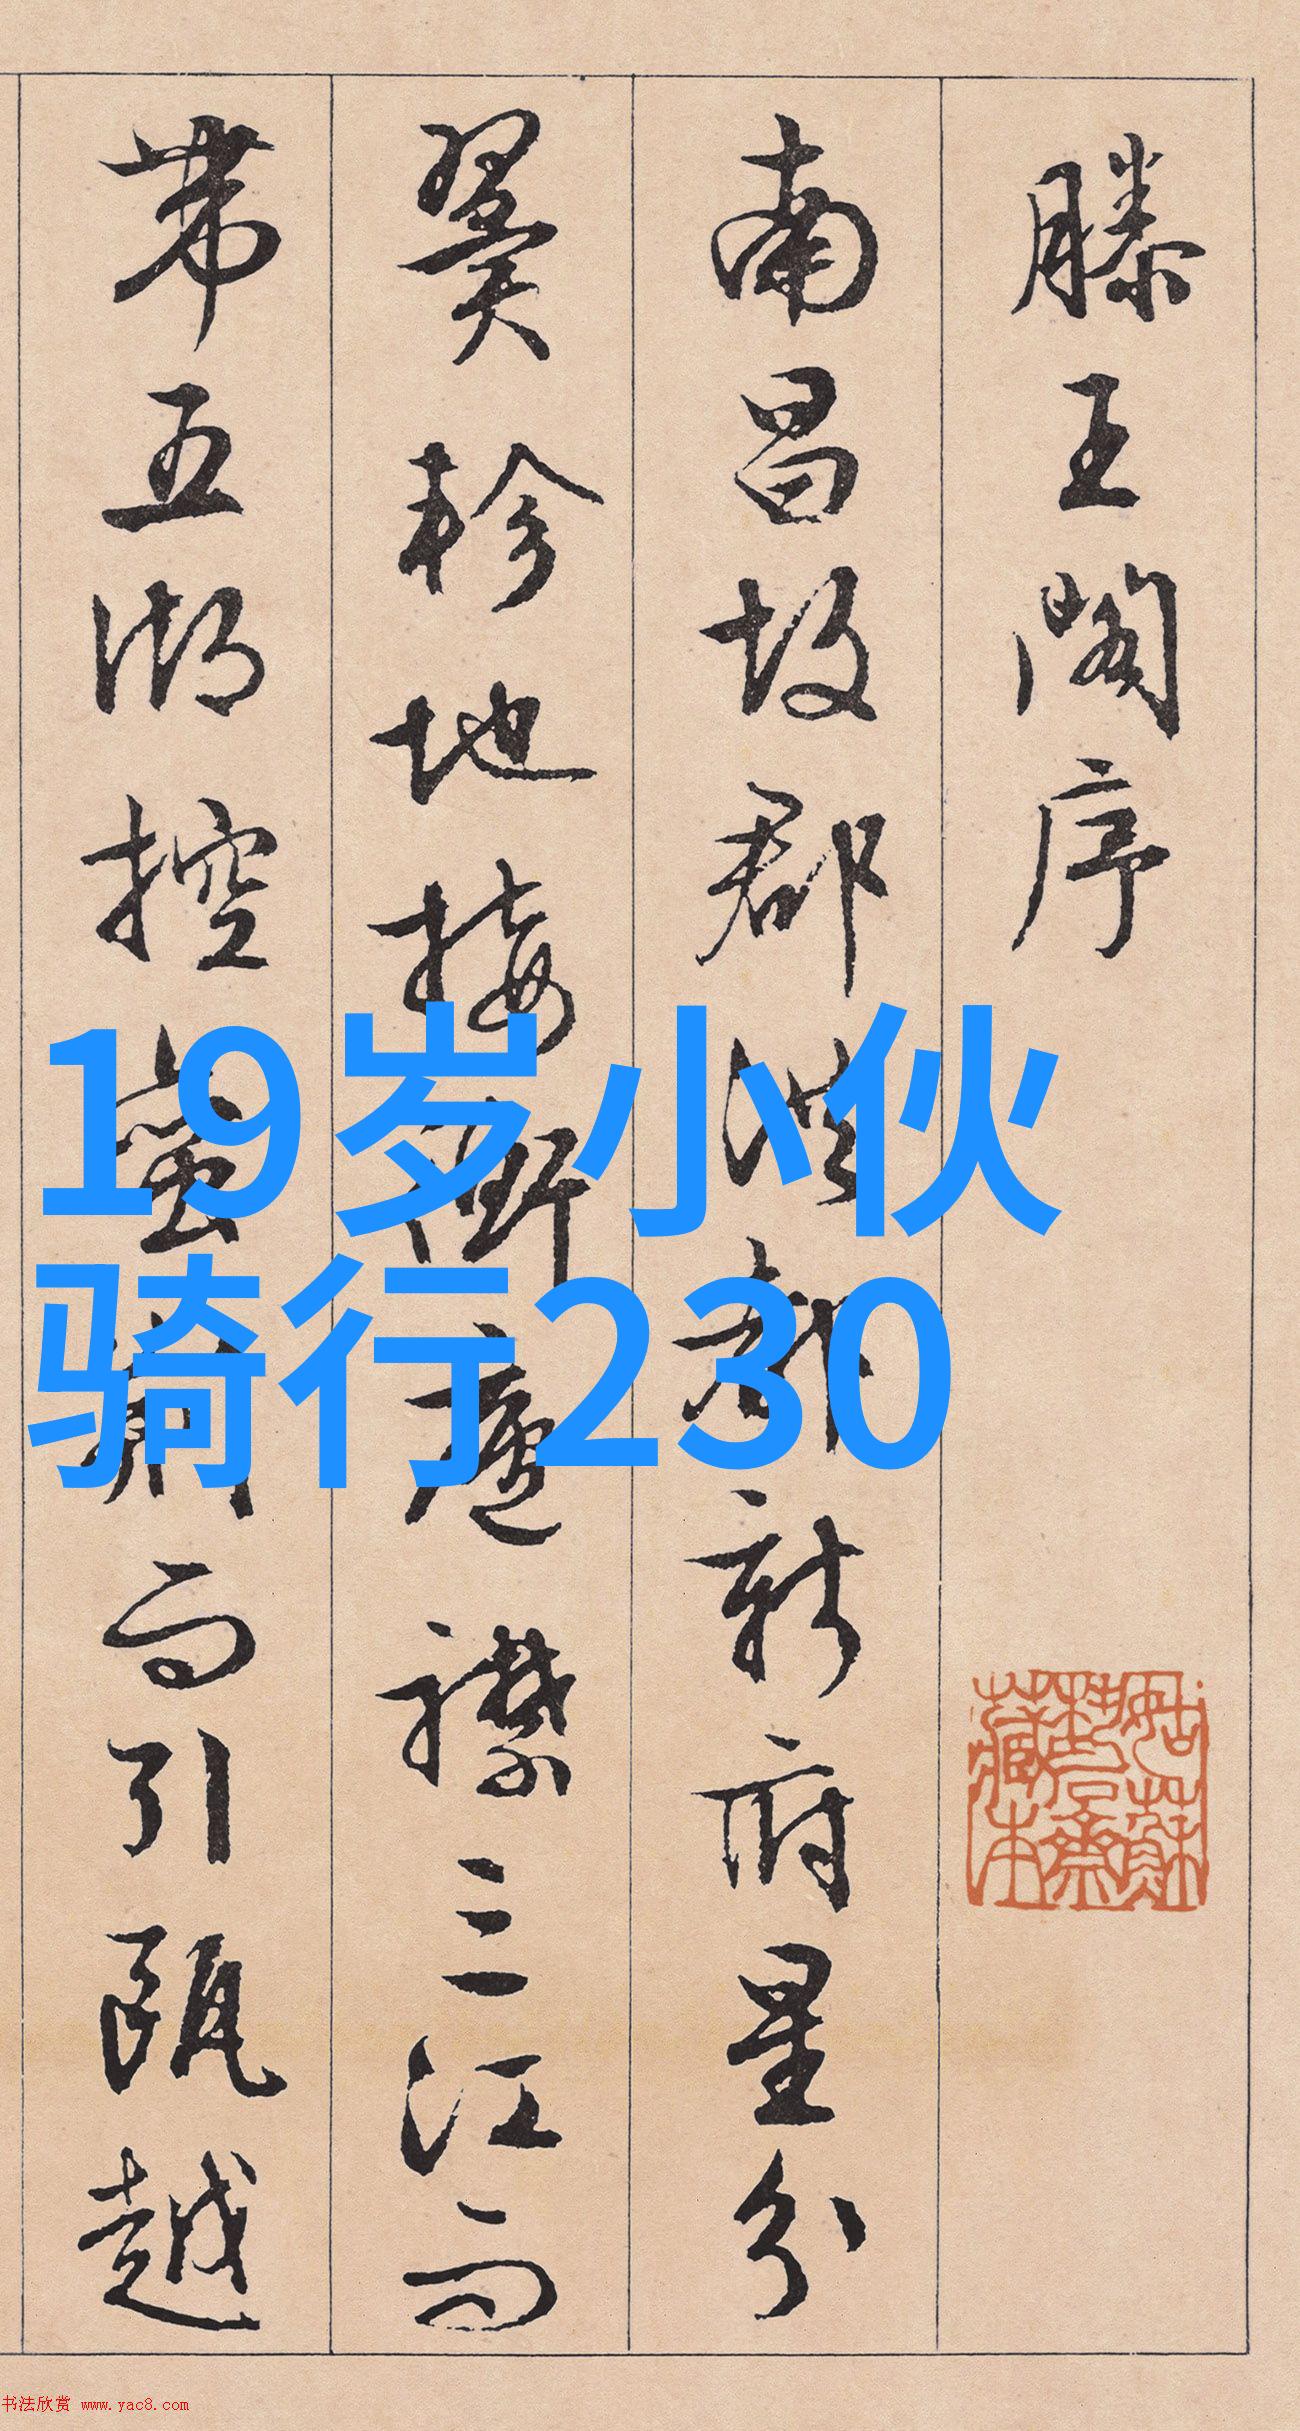 滕王阁序
南昌故郡洪都新府星分
翼轸地接衡庐襟三江而
带五湖控蛮荆而引瓯越
19岁小伙
骑行230
姑苏
斋
藏本
书法欣赏 www.yac8.com